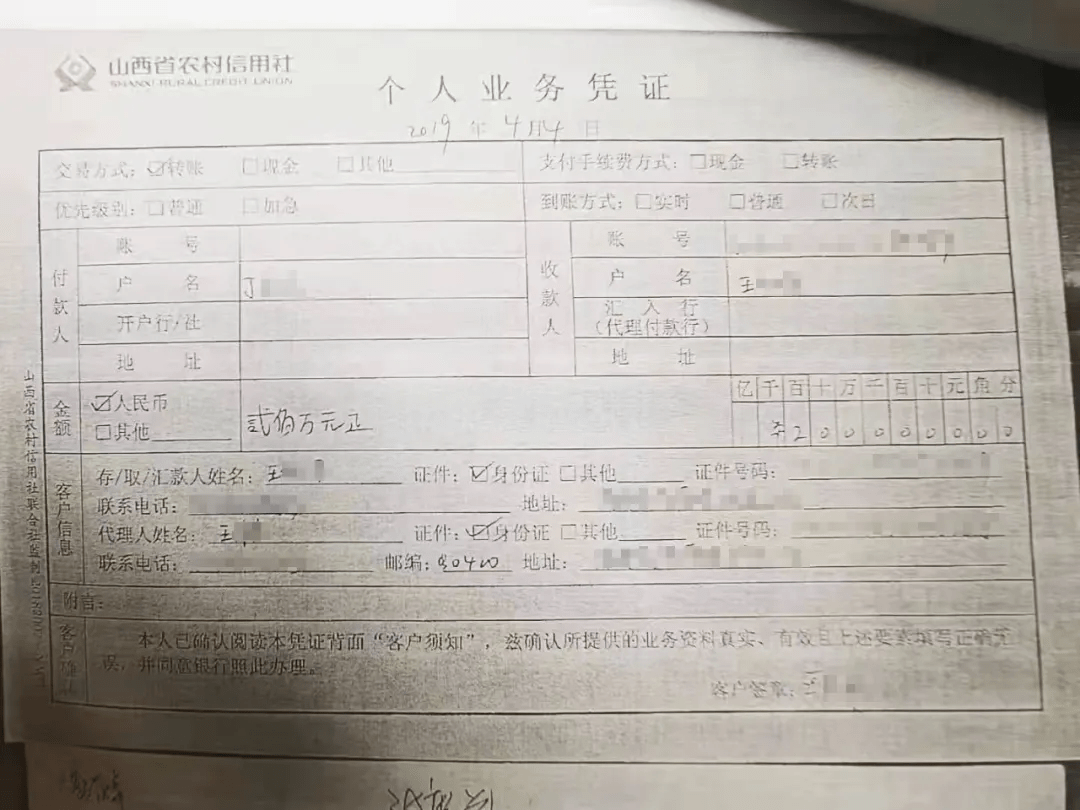 山西省农村信用社
SHANXI RURAL CREDIT UNION
个人业务凭证
2019 年 4 月 4 日
交易方式：☑转账 □现金 □其他
支付手续费方式：□现金 □转账
优先级别：□普通 □加急
到账方式：□实时 □普通 □次日
付款人
账 号
户 名
开户行/社
地 址
收款人
账 号
户 名 王
汇入行
（代理付款行）
地 址
金额
☑人民币
□其他
贰佰万元正
亿 千 百 十 万 千 百 十 元 角 分
2 0 0 0 0 0 0 0 0
客户信息
存/取/汇款人姓名：王 证件：☑身份证 □其他 证件号码：
联系电话： 地址：
代理人姓名：王 证件：☑身份证 □其他 证件号码：
联系电话： 邮编： 地址：
附言：
客户确认
本人已确认阅读本凭证背面“客户须知”，兹确认所提供的业务资料真实、有效且上述要素填写正确无
误，并同意银行照此办理。
客户签章：
山西省农村信用社联合社监制